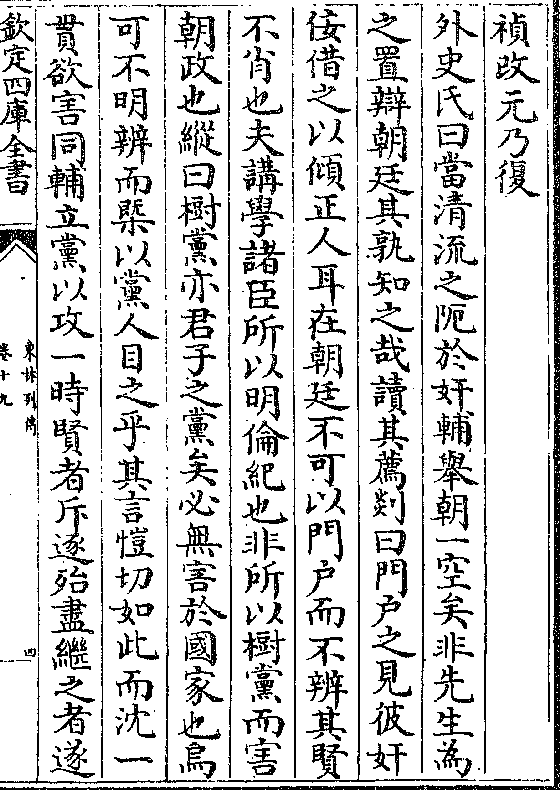 禎改元乃復
外史氏曰當清流之阨於奸輔舉朝一空矣非先生為
之置辯朝廷其孰知之哉讀其薦剡曰門户之見彼奸
佞借之以傾正人耳在朝廷不可以門户而不辨其賢
不肖也夫講學諸臣所以明倫紀也非所以樹黨而害
朝政也縱曰樹黨亦君子之黨矣必無害於國家也烏
可不明辨而槩以黨人目之乎其言愷切如此而沈一
貫欲害同輔立黨以攻一時賢者斥逐殆盡繼之者遂
欽定四庫全書
東林列傳
卷十九
四